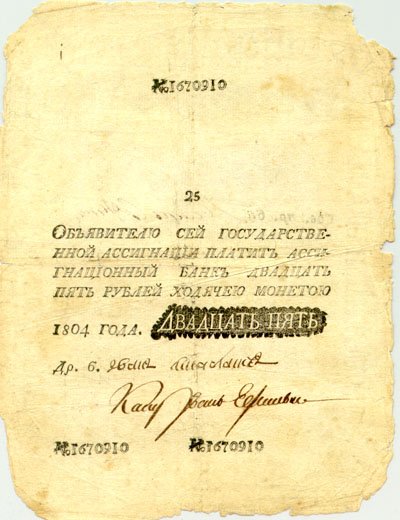 №1670910
25
ОБЪЯВИТЕЛЮ СЕЙ ГОСУДАРСТВЕ-
ННОЙ АССИГНАЦIИ ПЛАТИТЪ АССИ-
ГНАЦIОННЫЙ БАНКЪ ДВАДЦАТЬ
ПЯТЬ РУБЛЕЙ ХОДЯЧЕЮ МОНЕТОЮ
1804 ГОДА. ДВАДЦАТЬ ПЯТЬ
Др. б.
№1670910 №1670910